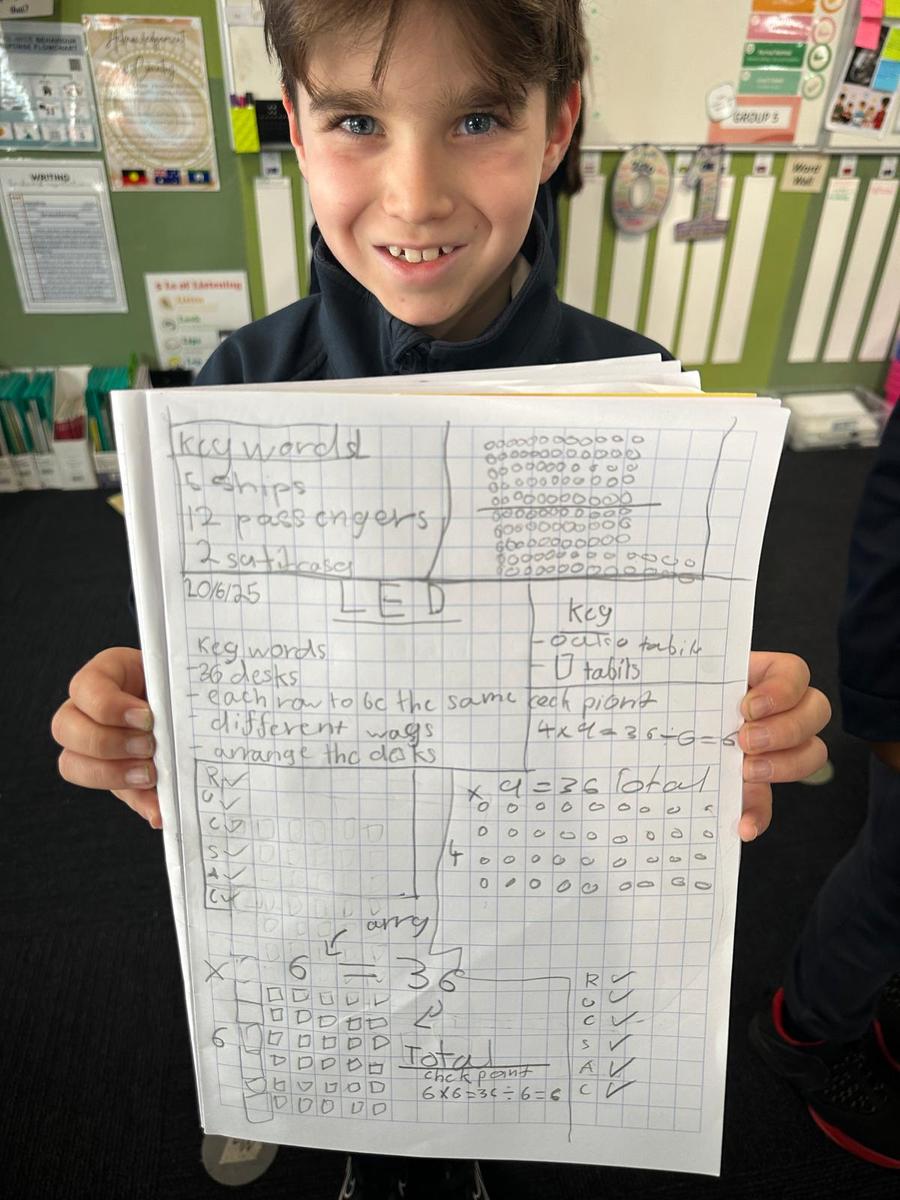 Acknowledgement
of Country
WRITING
GROUP 5
Word
Wall
key words
5 ships
12 passengers
2 sutitcases
20/6/25
LED
key
tabils
key words
- 36 desks
- each row to be the same
- different ways
- arrange the desks
ceck piont
4x9=36÷6=6
R✓
U✓
C✓
S✓
A✓
C✓
x 9=36 Total
4
arry
x 6 = 36
6
Total
chck point
6x6=36÷6=6
R ✓
U ✓
C ✓
S ✓
A ✓
C ✓